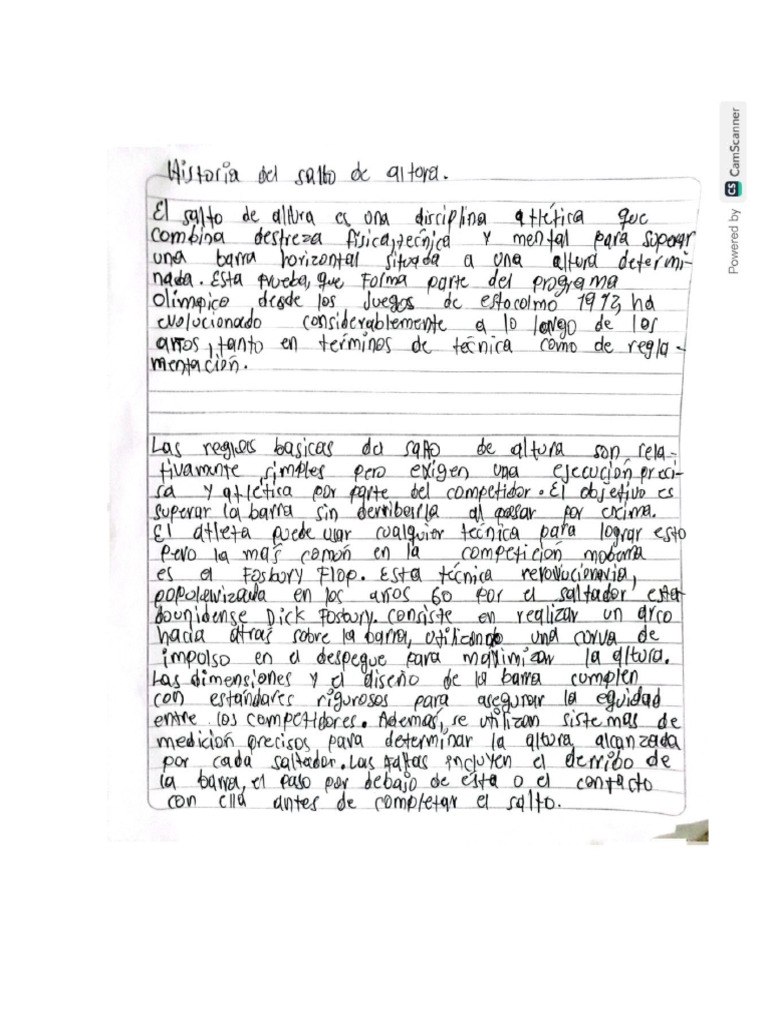 Historia del salto de altura.
El salto de altura es una disciplina atlética que
combina destreza física, técnica y mental para superar
una barra horizontal situada a una altura determi-
nada. Esta prueba, que forma parte del programa
Olímpico desde los Juegos de estocolmo 1912, ha
evolucionado considerablemente a lo largo de los
años, tanto en términos de técnica como de regla-
mentación.
Las reglas basicas del salto de altura son, rela-
tivamante simples pero exigen una ejecución, preci-
sa y atlética por parte del competidor. El objetivo es
superar la barra sin derribarla al pasar por encima.
El atleta puede usar cualquier técnica para lograr esto
pero la más común en la competición moderna
es el Fosbury Flop. Esta técnica revolucionaria,
popularizada en los años 60 por el saltador esta-
dounidense Dick Fosbury. consiste en realizar un arco
hacia atrás sobre la barra, utilizando una curva de
impulso en el despegue para maximizar la altura.
Las dimensiones y el diseño de la barra cumplen
con estándares rigurosos para asegurar la equidad
entre los competidores. Además, se utilizan sistemas de
medición precisos para determinar la altura alcanzada
por cada saltador. Las faltas incluyen el derribo de
la barra, el paso por debajo de esta o el contacto
con ella antes de completar el salto.
Powered by CS CamScanner